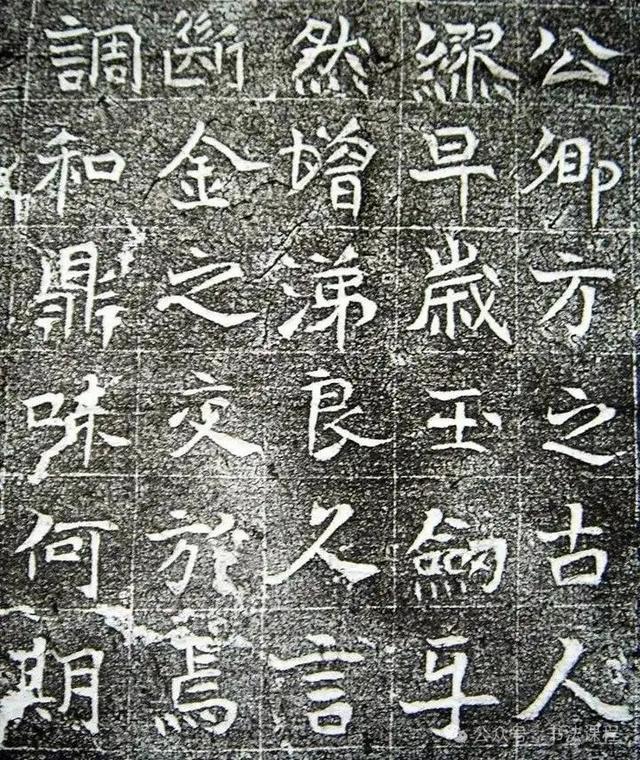 公卿方之古人
繆早歲玉劒牙
然增涕良久言
斷金之交於焉
調和鼎味何期
公众号 · 书法课程